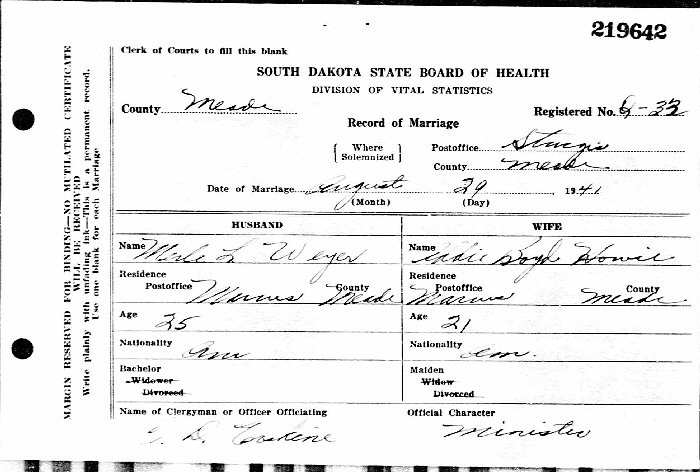 219642
Clerk of Courts to fill this blank
SOUTH DAKOTA STATE BOARD OF HEALTH
DIVISION OF VITAL STATISTICS
County Meade
Registered No. 8-33
Record of Marriage
{ Where Solemnized } Postoffice Sturgis
County Meade
Date of Marriage August 29 1941
(Month) (Day)
HUSBAND WIFE
Name Merle L Weyer Name Eddie Boyd Howie
Residence Residence
Postoffice Marcus County Meade Postoffice Marcus County Meade
Age 25 Age 21
Nationality Am Nationality Am.
Bachelor Maiden
Widower Widow
Divorced Divorced
Name of Clergyman or Officer Officiating Official Character
G. D. Erskine Minister
MARGIN RESERVED FOR BINDING—NO MUTILATED CERTIFICATE
WILL BE RECEIVED
Write plainly with unfading ink—This is a permanent record.
Use one blank for each Marriage